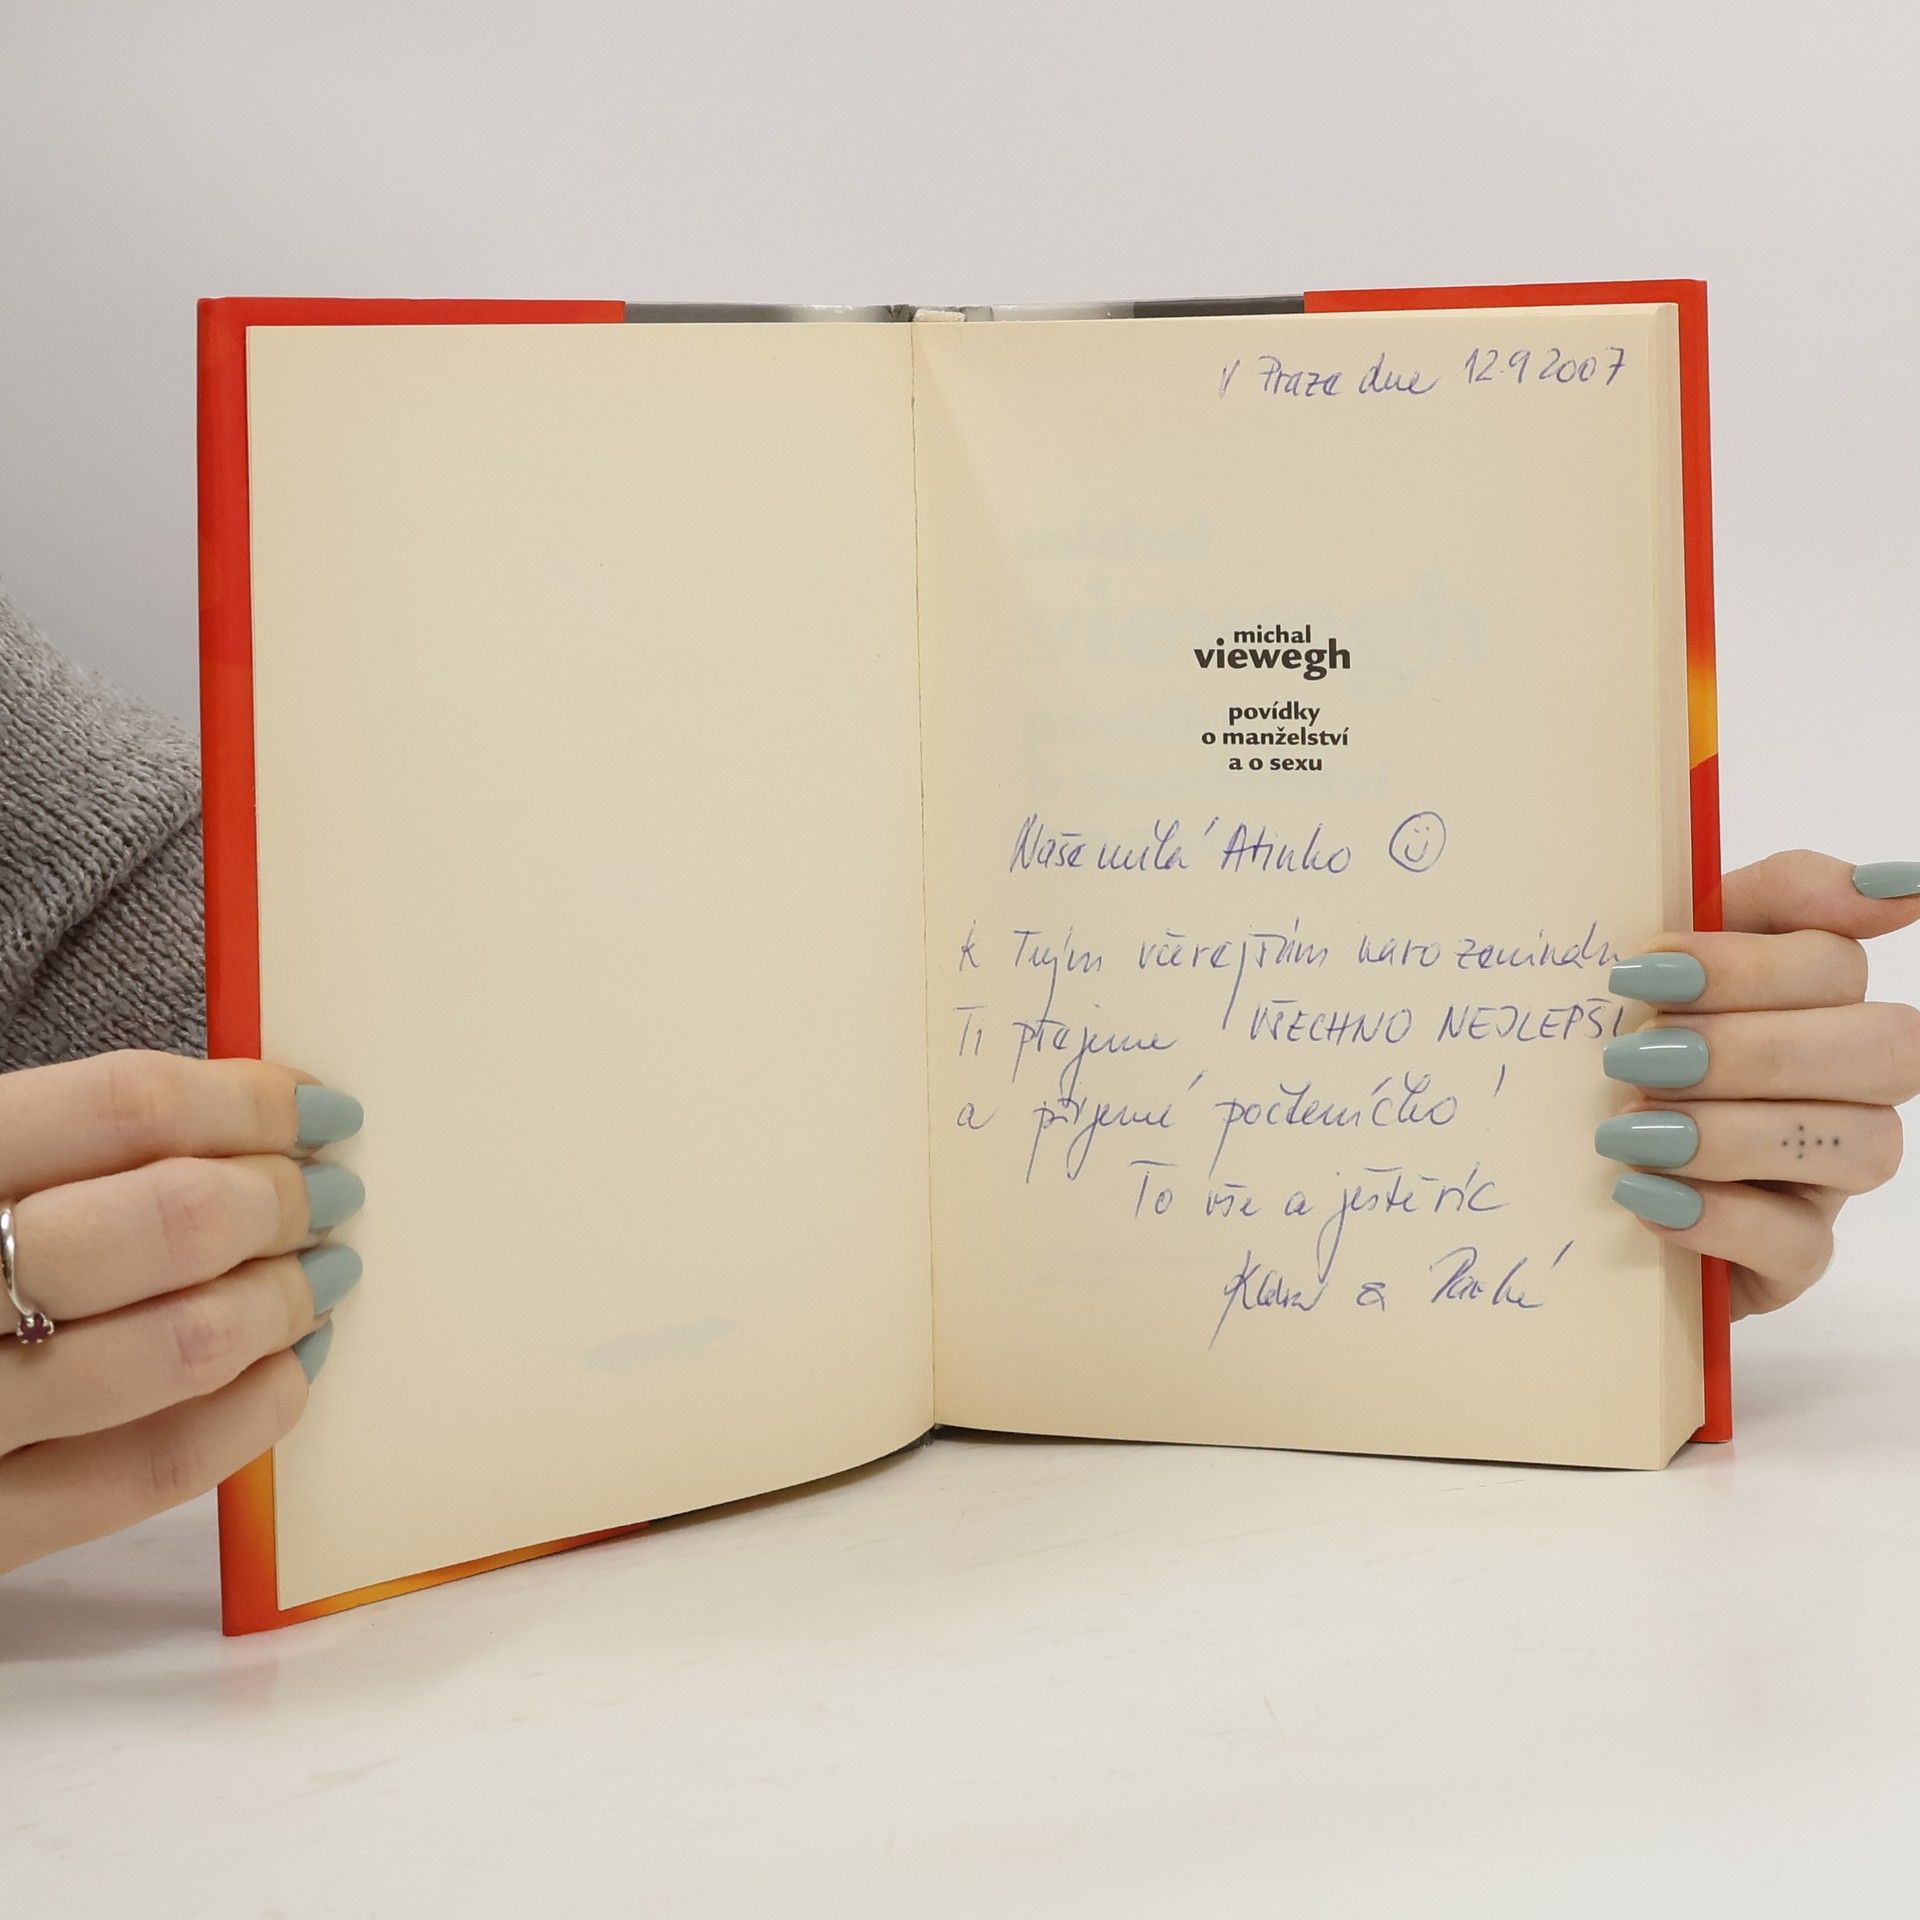 V Praze dne 12.9 2007
michal
viewegh
povídky
o manželství
a o sexu
Naše milá Atinko
k Tvým včerejším narozeninám
Ti přejeme VŠECHNO NEJLEPŠÍ
a příjemné počteníčko!
To vše a ještě víc
&